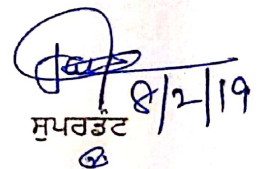 8/2/19
ਸੁਪਰਡੰਟ